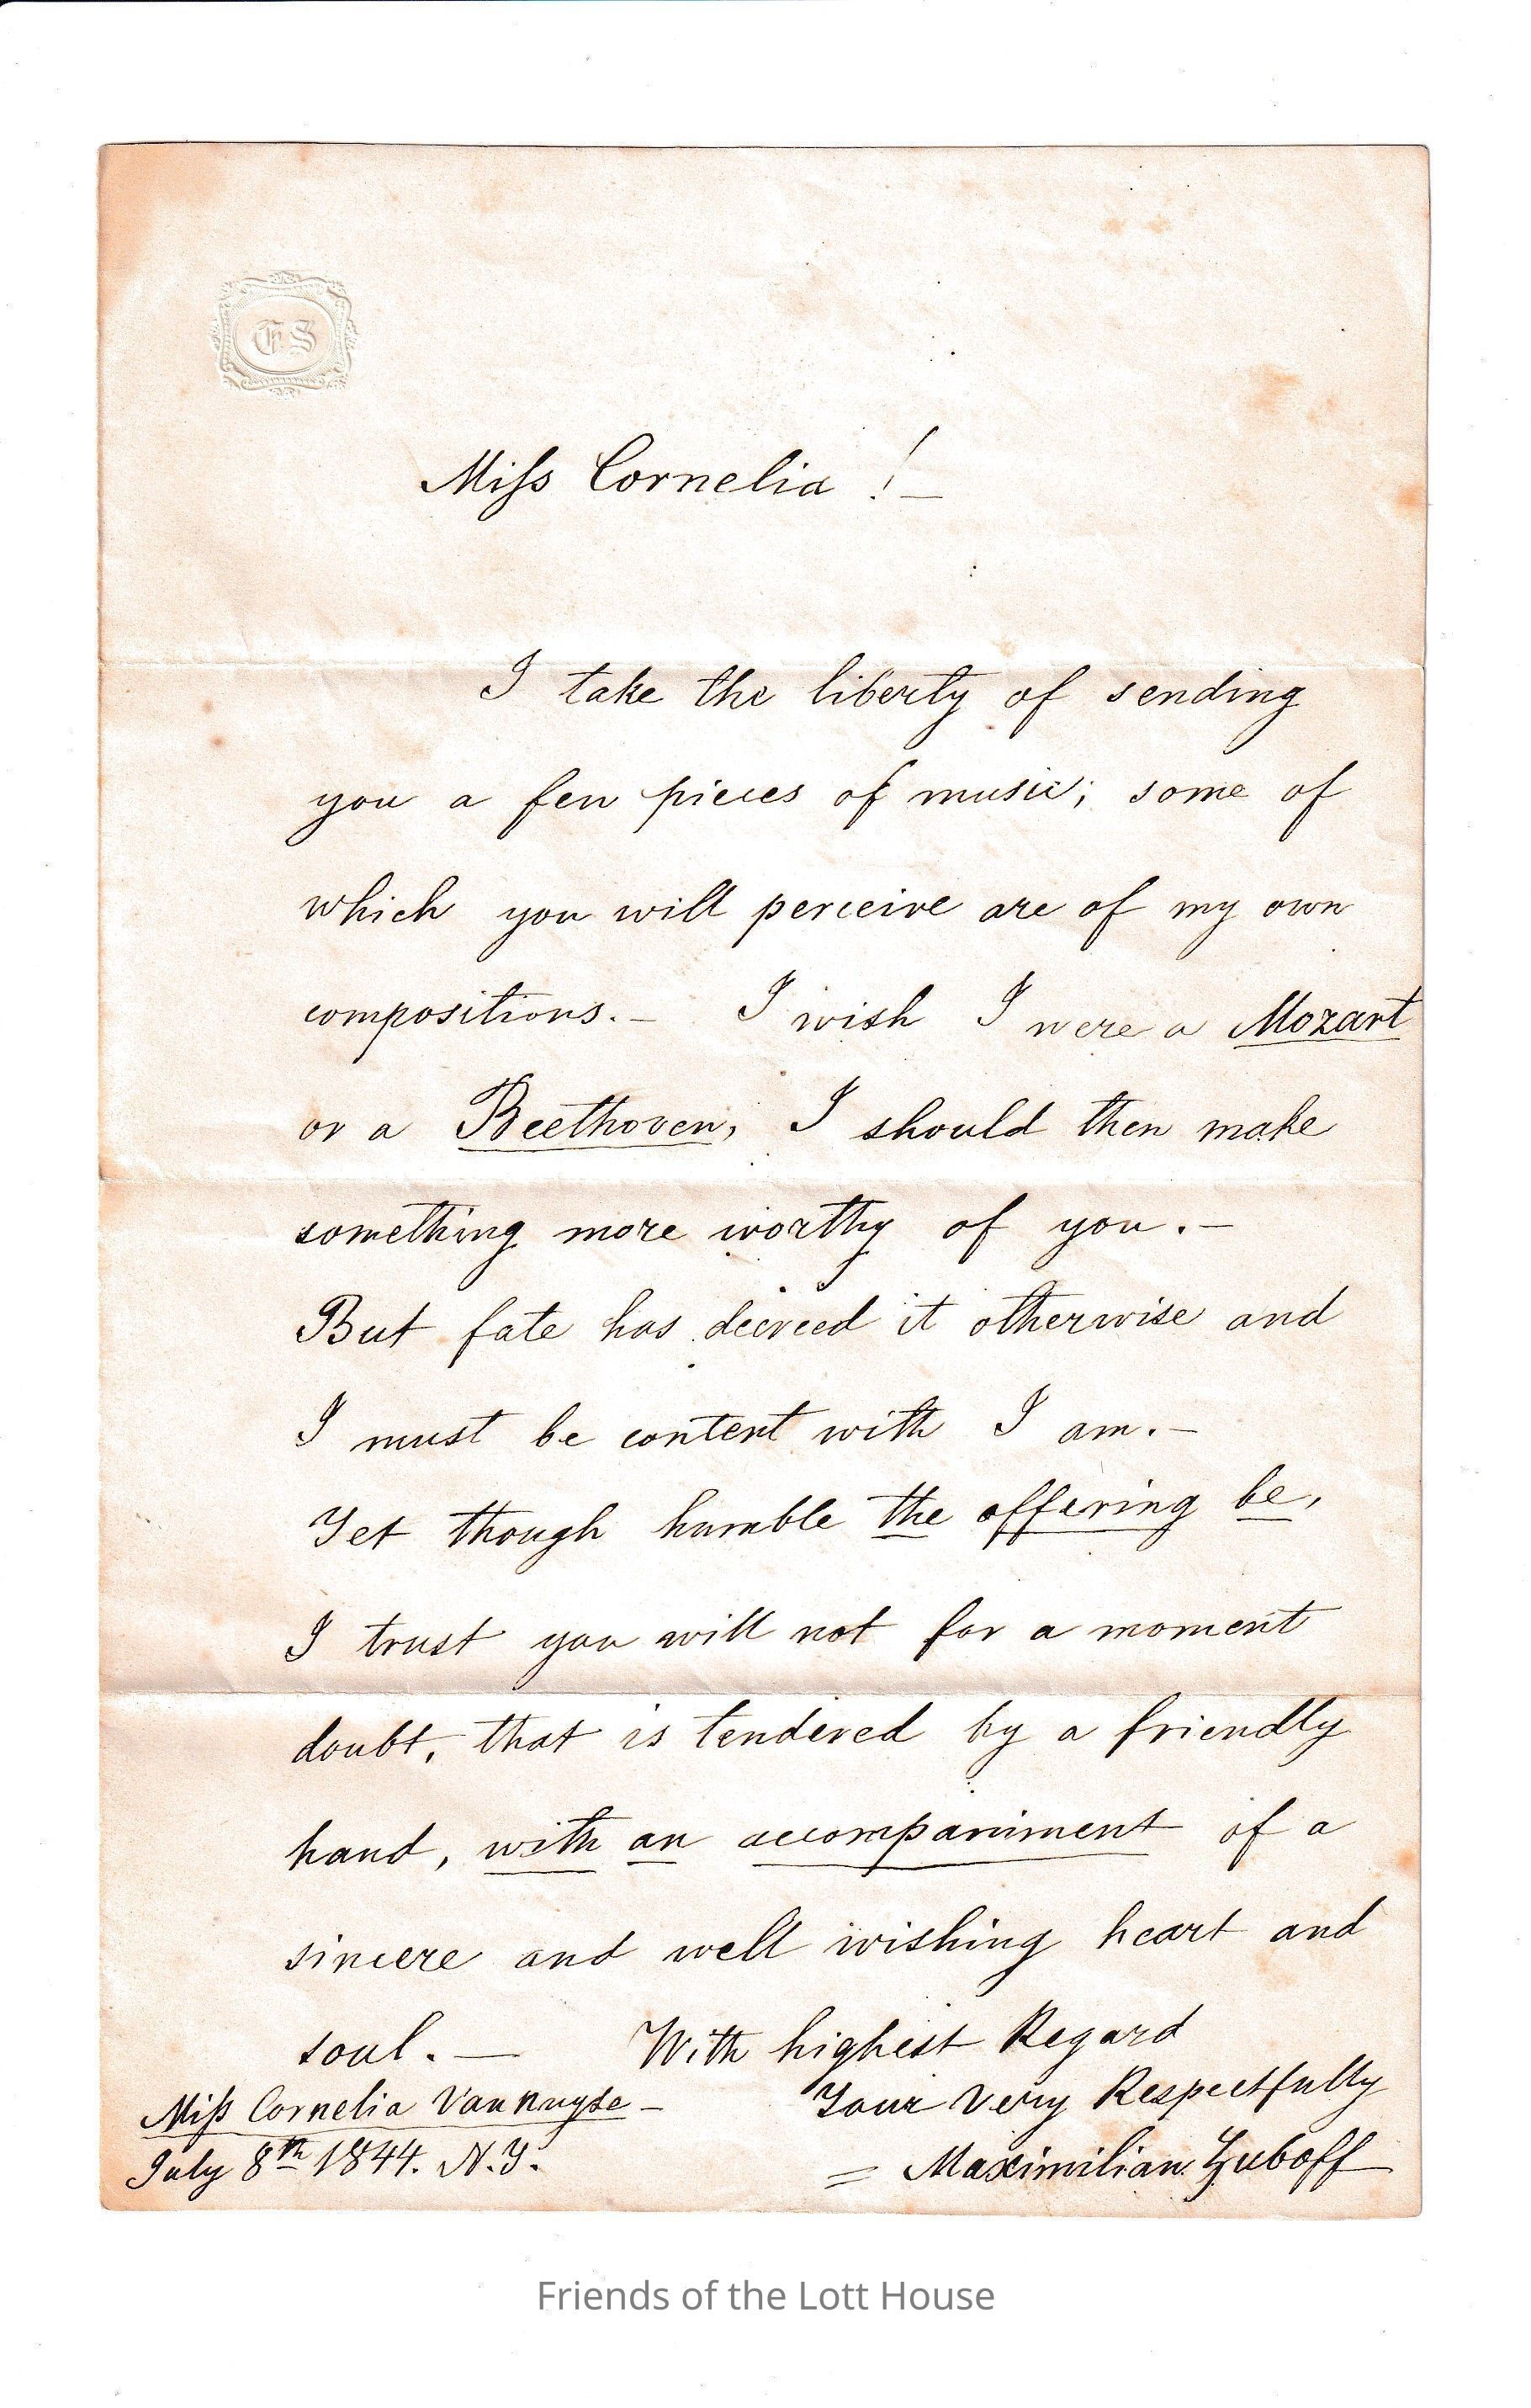 ES
Miss Cornelia !—
I take the liberty of sending
you a few pieces of music; some of
which you will perceive are of my own
compositions.— I wish I were a Mozart
or a Beethoven, I should then make
something more worthy of you.—
But fate has decreed it otherwise and
I must be content with I am.—
Yet though humble the offering be,
I trust you will not for a moment
doubt, that is tendered by a friendly
hand, with an accompaniment of a
sincere and well wishing heart and
soul.— With highest Regard
Your Very Respectfully
Miss Cornelia Van Nuyse—
July 8th 1844. N.Y.
= Maximilian Zuboff
Friends of the Lott House